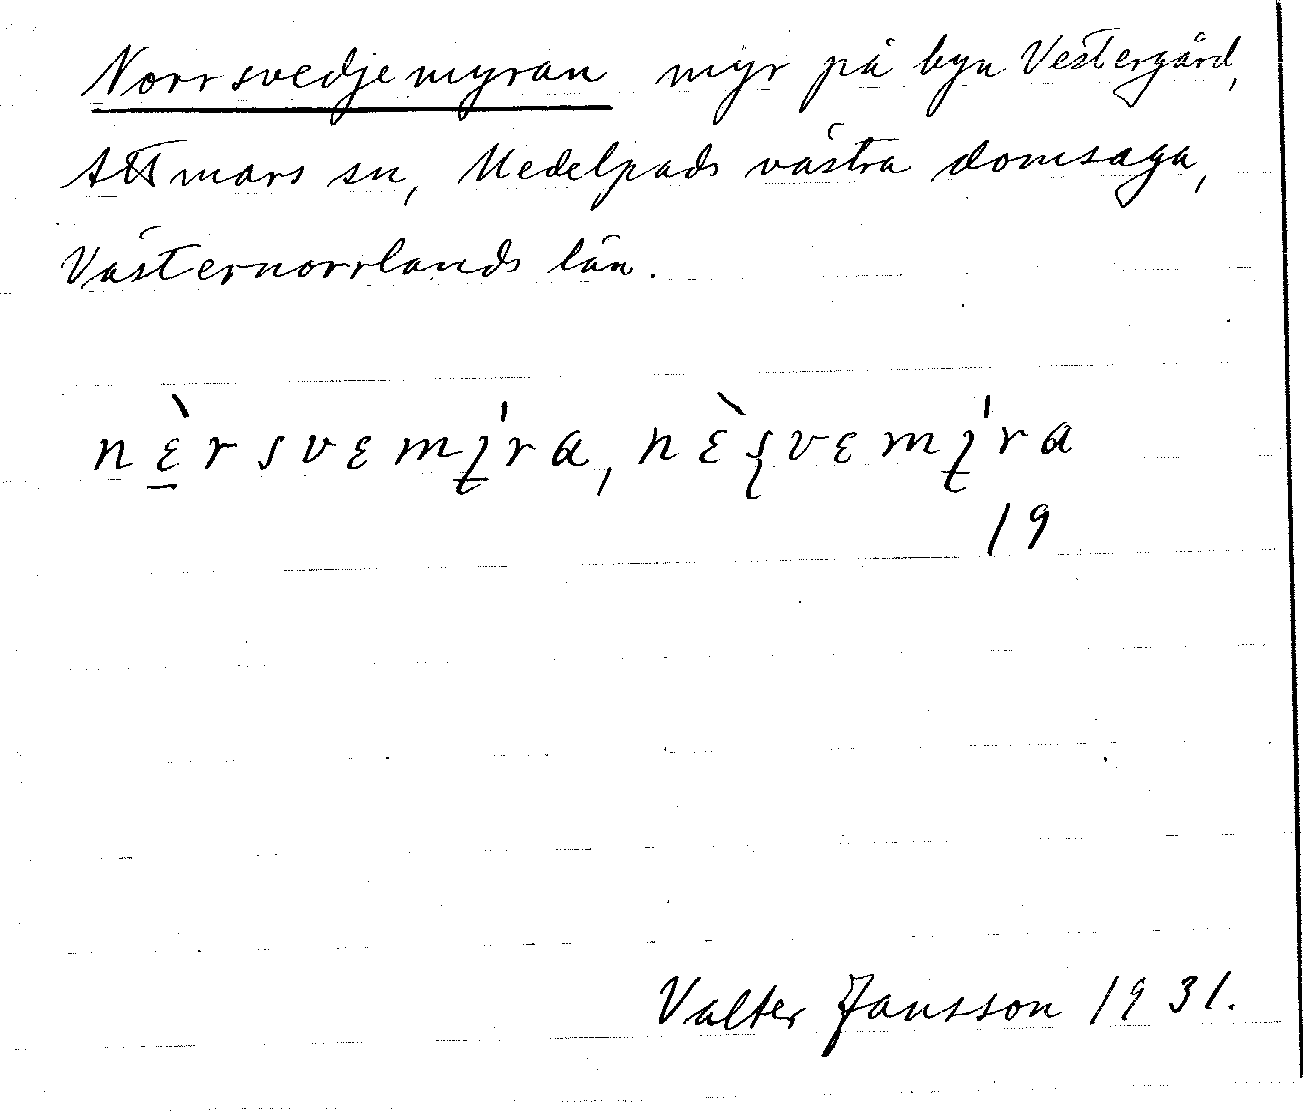 Norrsvedjemyran myr på byn Vestergård,
Attmars sn, Medelpads västra domsaga,
Västernorrlands län.
nɛ̀rsvɛmý̵ra, nɛ̀ʂvɛmý̵ra
19
Valter Jansson 1931.